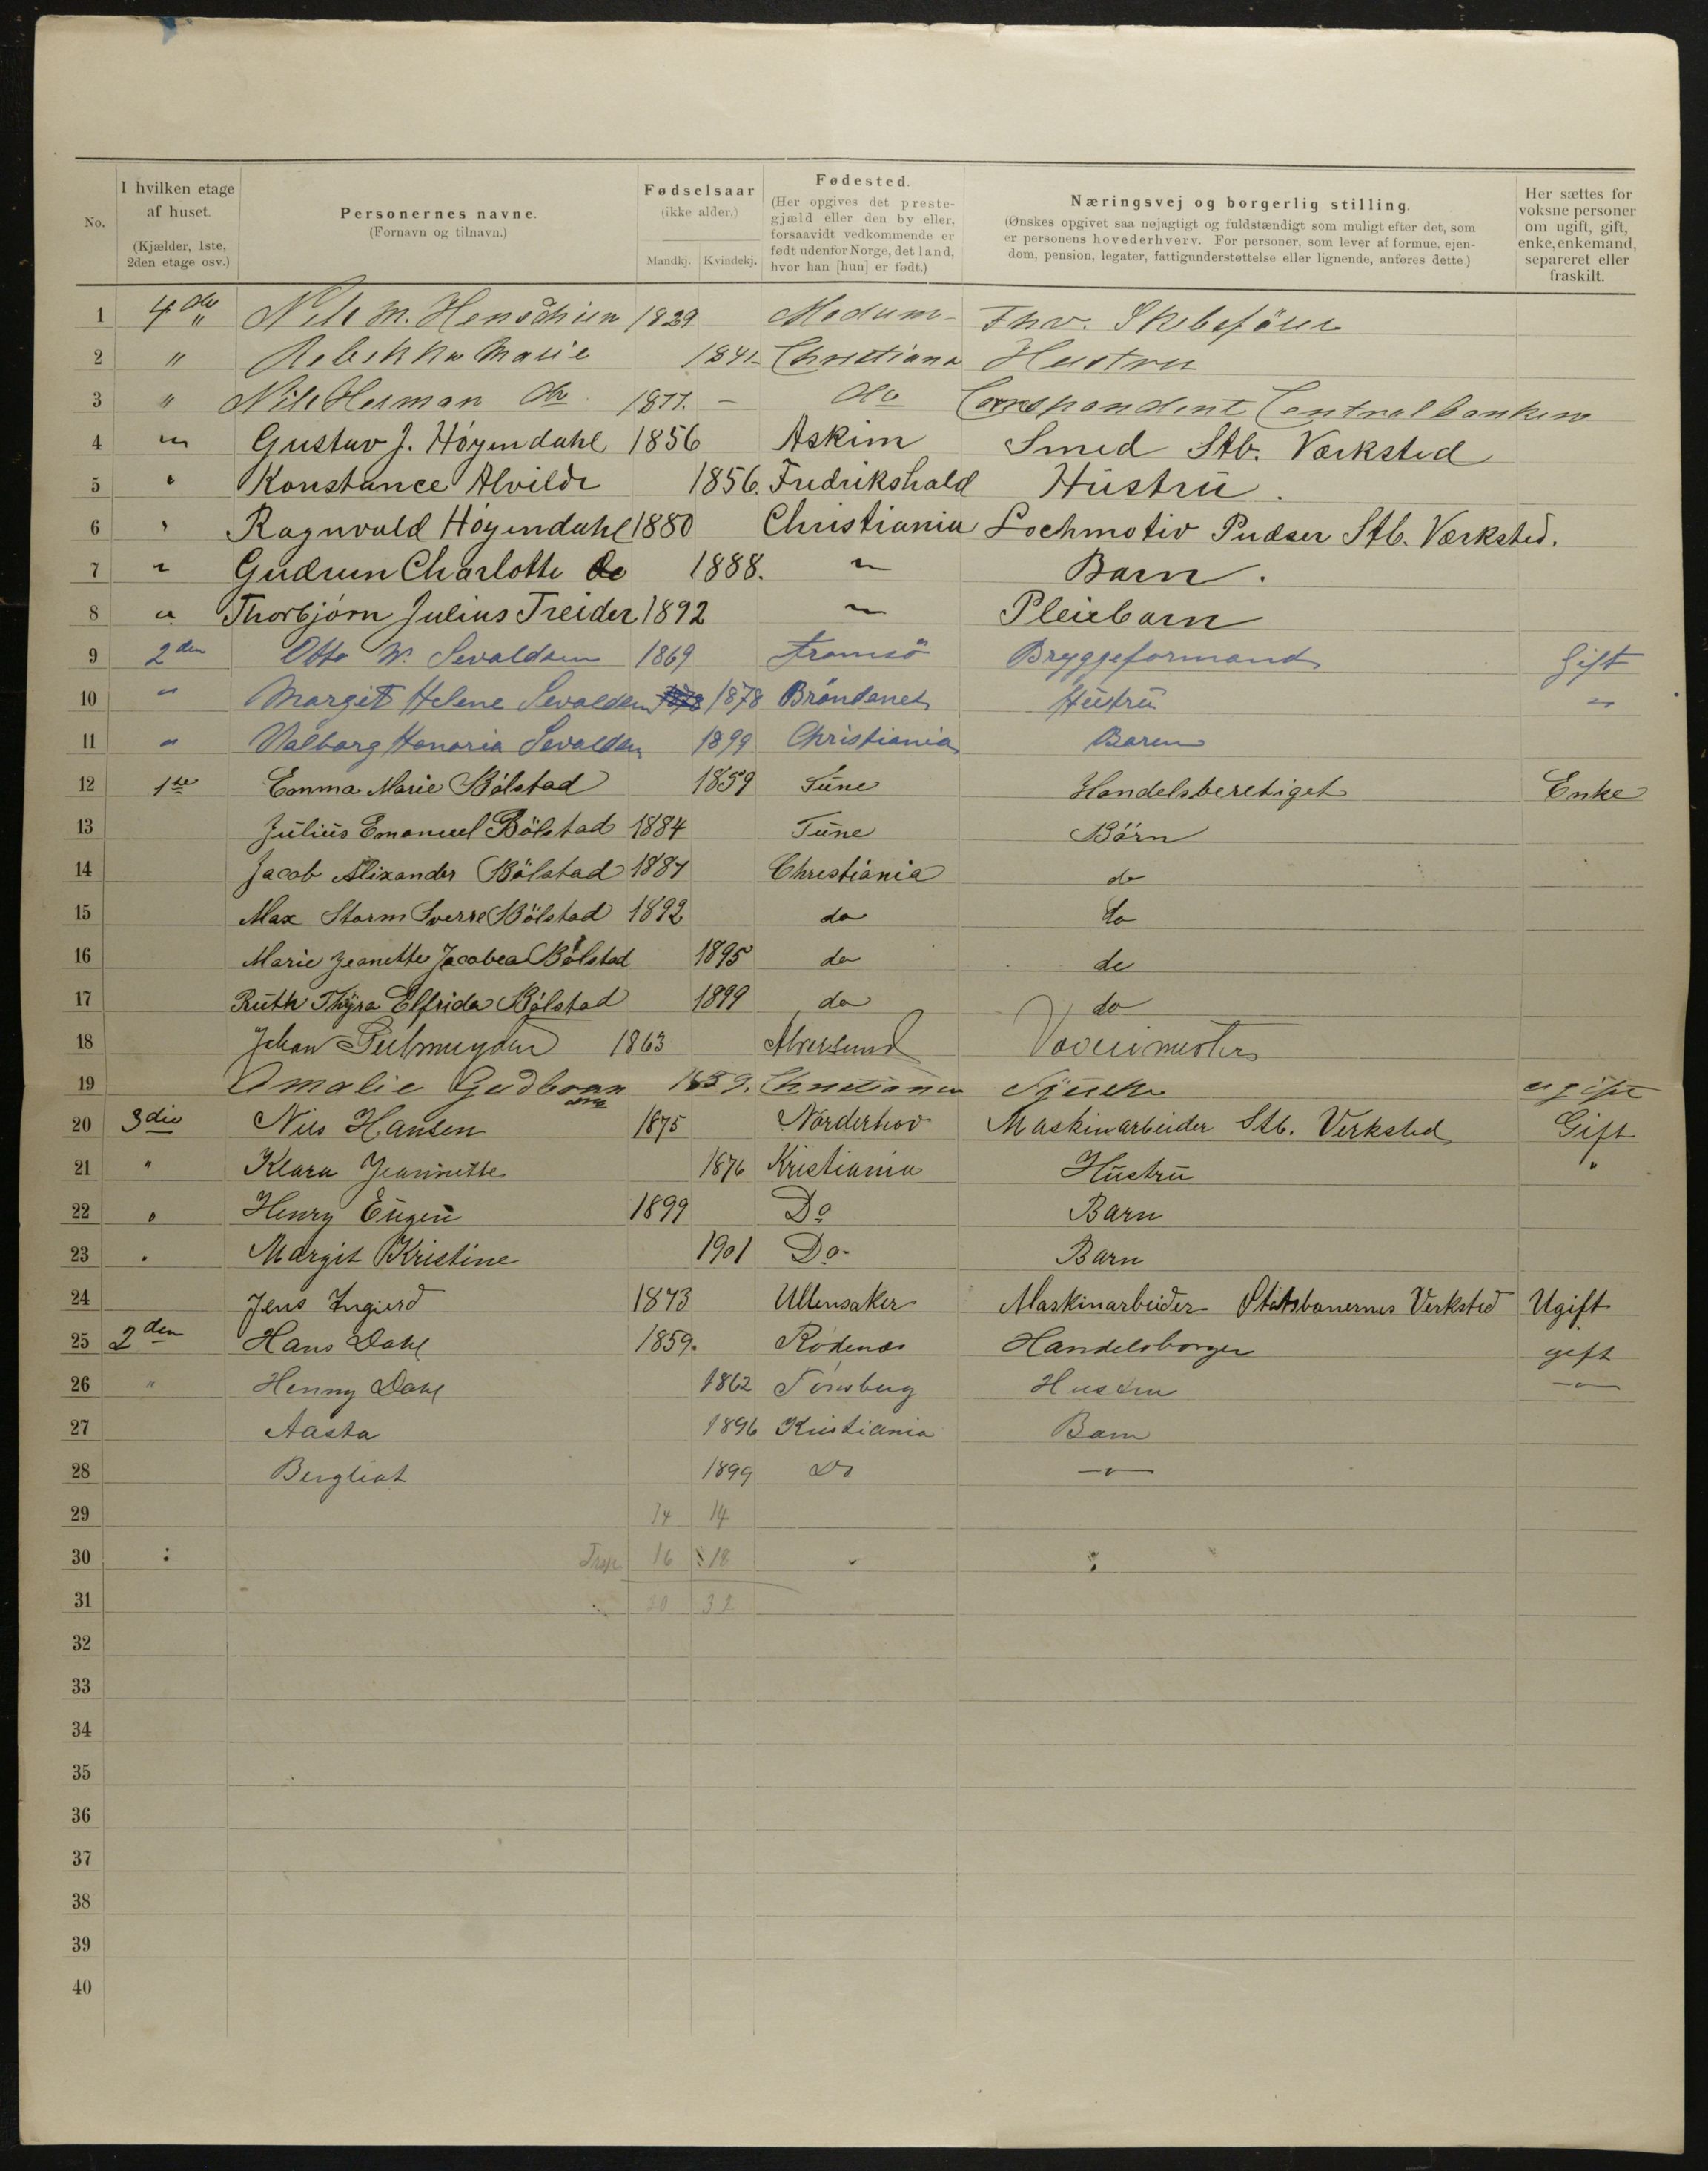 No.
I hvilken etage af huset.
(Kjælder, 1ste, 2den etage osv.)
Personernes navne.
(Fornavn og tilnavn.)
Fødselsaar
(ikke alder.)
Mandkj. Kvindekj.
Fødested.
(Her opgives det preste-
gjæld eller den by eller,
forsaavidt vedkommende er
født udenfor Norge, det land,
hvor han [hun] er født.)
Næringsvej og borgerlig stilling.
(Ønskes opgivet saa nøjagtigt og fuldstændigt som muligt efter det, som
er personens hovederhverv. For personer, som lever af formue, ejen-
dom, pension, legater, fattigunderstøttelse eller lignende, anføres dette)
Her sættes for
voksne personer
om ugift, gift,
enke, enkemand,
separeret eller
fraskilt.
1 4de Nils M. 1829 Modum Fhv. Skibsfører
2 " Rebekka Marie 1841 Christiana Hustru
3 " Nils Herman do 1877. - do Correspondent Centralbanken
4 " Gustav J. Høyendahl 1856 Askim Smed Stb. Værksted
5 " Konstance Alvilde 1856. Fredrikshald Hustru.
6 " Ragnvald Høyendahl 1880 Christiania Lochmotiv Pudser Stb. Værksted.
7 " Gudrun Charlotte do 1888. " Barn.
8 " Thorbjørn Julius Treider 1892 " Pleiebarn
9 2den Otto W. Sevaldsen 1869 Tromsö Bryggeformand Gift
10 " Margit Helene Sevaldsen 1878 1878 Brönöanes Hustru "
11 " Valborg Honoria Sevaldsen 1899 Christiania Baren
12 1ste Emma Marie Bölstad 1859 Tune Handelsberetiget Enke
13 Julius Emanuel Bölstad 1884 Tune Börn
14 Jacob Alixander Bölstad 1887 Christiania do
15 Max Storm Sverre Bölstad 1892 do do
16 Marie Jeanette Jacobea Bölstad 1895 do do
17 Ruth Thyra Elfrida Bölstad 1899 do do
18 Johan 1863 Alversund
19 Amalie Gudbran 1859. Christiania ugift
20 3die Nils Hansen 1875 Norderhov Maskinarbeider Stb. Verksted Gift
21 " Klara Jeannette 1876 Kristiania Hustru "
22 " Henry Eugen 1899 Do Barn
23 . Margit Kristine 1901 Do. Barn
24 Jens Ingierd 1873 Ullensaker Maskinarbeider Statsbanernes Verksted Ugift
25 2den Hans Dahl 1859. Rødenes Handelsborger gift
26 " Henny Dahl 1862 Tönsberg Hustru -"-
27 Aasta 1896 Kristiania Barn
28 Bergliot 1899 Do -"-
29 14 14
30 16 18
31 30 32
32
33
34
35
36
37
38
39
40